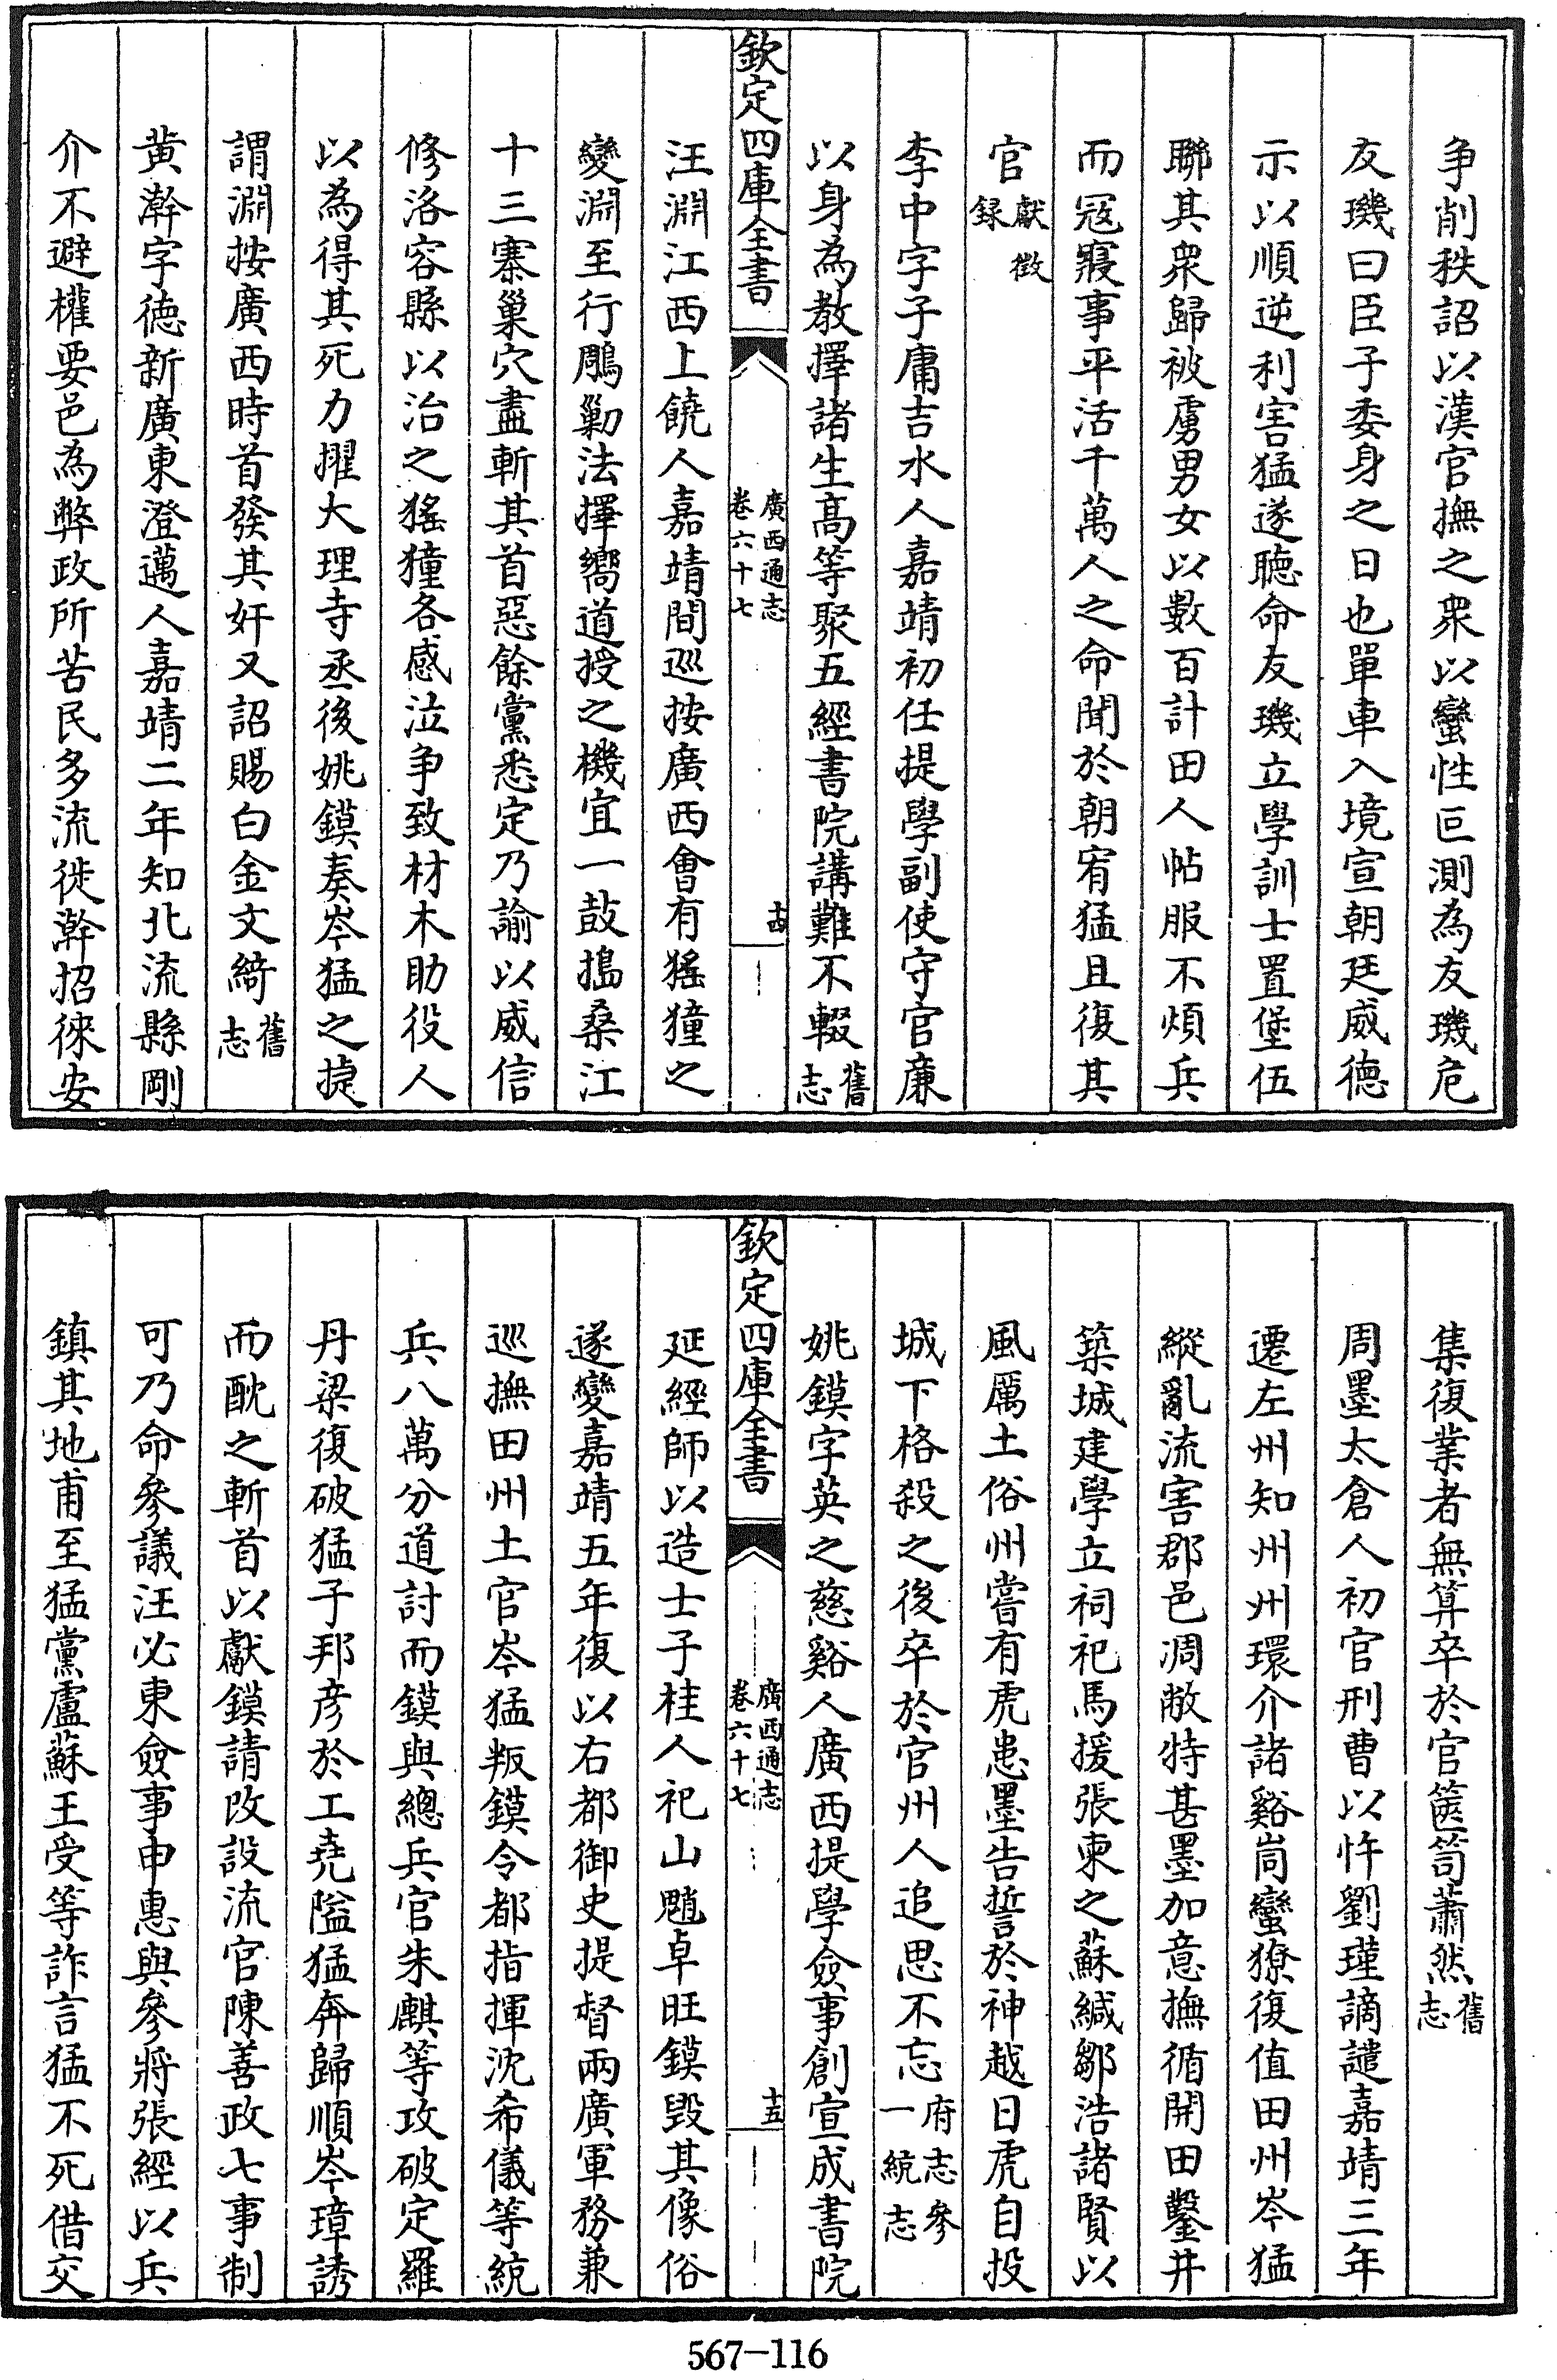 争削秩詔以漢官撫之衆以蠻性叵測為友璣危
友璣曰臣子委身之日也單車入境宣朝廷威德
示以順逆利害猛遂聴命友璣立學訓士置堡伍
聯其衆歸被虜男女以數百計田人帖服不煩兵
而冦寢事平活千萬人之命聞於朝宥猛且復其
官獻徵録
李中字子庸吉水人嘉靖初任提學副使守官亷
以身為教擇諸生髙等聚五經書院講難不輟舊志
欽定四庫全書
廣西通志
卷六十七
十四
汪淵江西上饒人嘉靖間巡按廣西會有猺獞之
變淵至行鵰勦法擇嚮道授之機宜一鼓搗桑江
十三寨巢穴盡斬其首惡餘黨悉定乃諭以威信
修洛容縣以治之猺獞各感泣争致材木助役人
以為得其死力擢大理寺丞後姚鏌奏岑猛之捷
謂淵按廣西時首發其奸又詔賜白金文綺舊志
黄澣字徳新廣東澄邁人嘉靖二年知北流縣剛
介不避權要邑為弊政所苦民多流徙澣招徠安
集復業者無算卒於官篋笥蕭然舊志
周墨太倉人初官刑曹以忤劉瑾謫譴嘉靖三年
遷左州知州州環介諸谿峝蠻獠復值田州岑猛
縱亂流害郡邑凋敝特甚墨加意撫循開田鑿井
築城建學立祠祀馬援張柬之蘇緘鄒浩諸賢以
風厲土俗州嘗有虎患墨告誓於神越日虎自投
城下格殺之後卒於官州人追思不忘府志參一統志
姚鏌字英之慈谿人廣西提學僉事創宣成書院
欽定四庫全書
廣西通志
卷六十七
十五
延經師以造士子桂人祀山魈卓旺鏌毀其像俗
遂變嘉靖五年復以右都御史提督兩廣軍務兼
巡撫田州土官岑猛叛鏌令都指揮沈希儀等統
兵八萬分道討而鏌與總兵官朱麒等攻破定羅
丹梁復破猛子邦彦於工堯隘猛奔歸順岑璋誘
而酖之斬首以獻鏌請改設流官陳善政七事制
可乃命參議汪必東僉事申惠與參將張經以兵
鎮其地甫至猛黨盧蘇王受等詐言猛不死借交
567-116